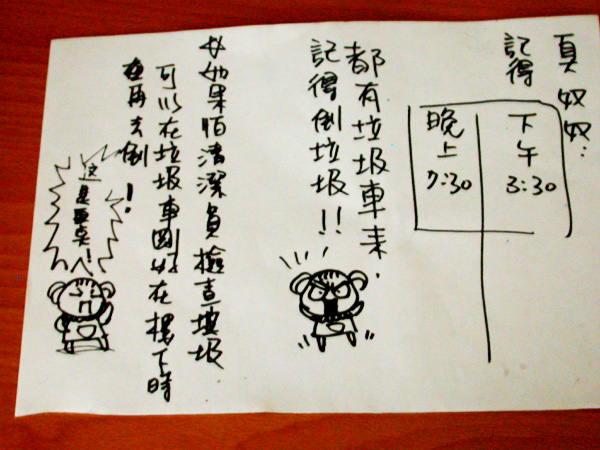 真奴奴:
記得
下午 3:30
晚上 7:30
都有垃圾車來,
記得倒垃圾!!
如果怕清潔員檢查垃圾
可以在垃圾車剛好在樓下時
再去倒!
这是重点!